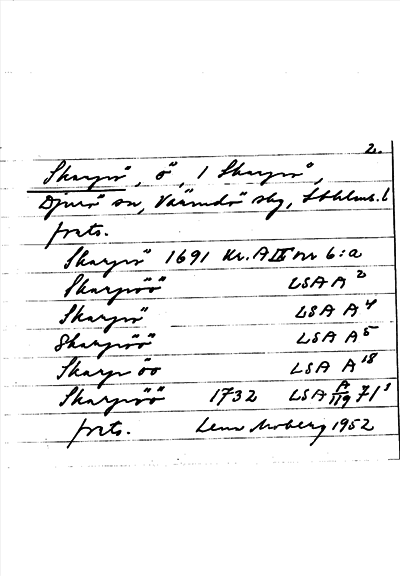 2.
Skarpö, ö, i Skarpö,
Djurö sn, Värmdö skg, Sthlms. l
forts.
Skarpö 1691 Kr. A IX nr 6:a
Skarpöö LSA A2
Skarpö LSA A4
Skarpöö LSA A5
Skarp öö LSA A18
Skarpöö 1732 LSA A/119 71:1
forts. Lena Moberg 1952